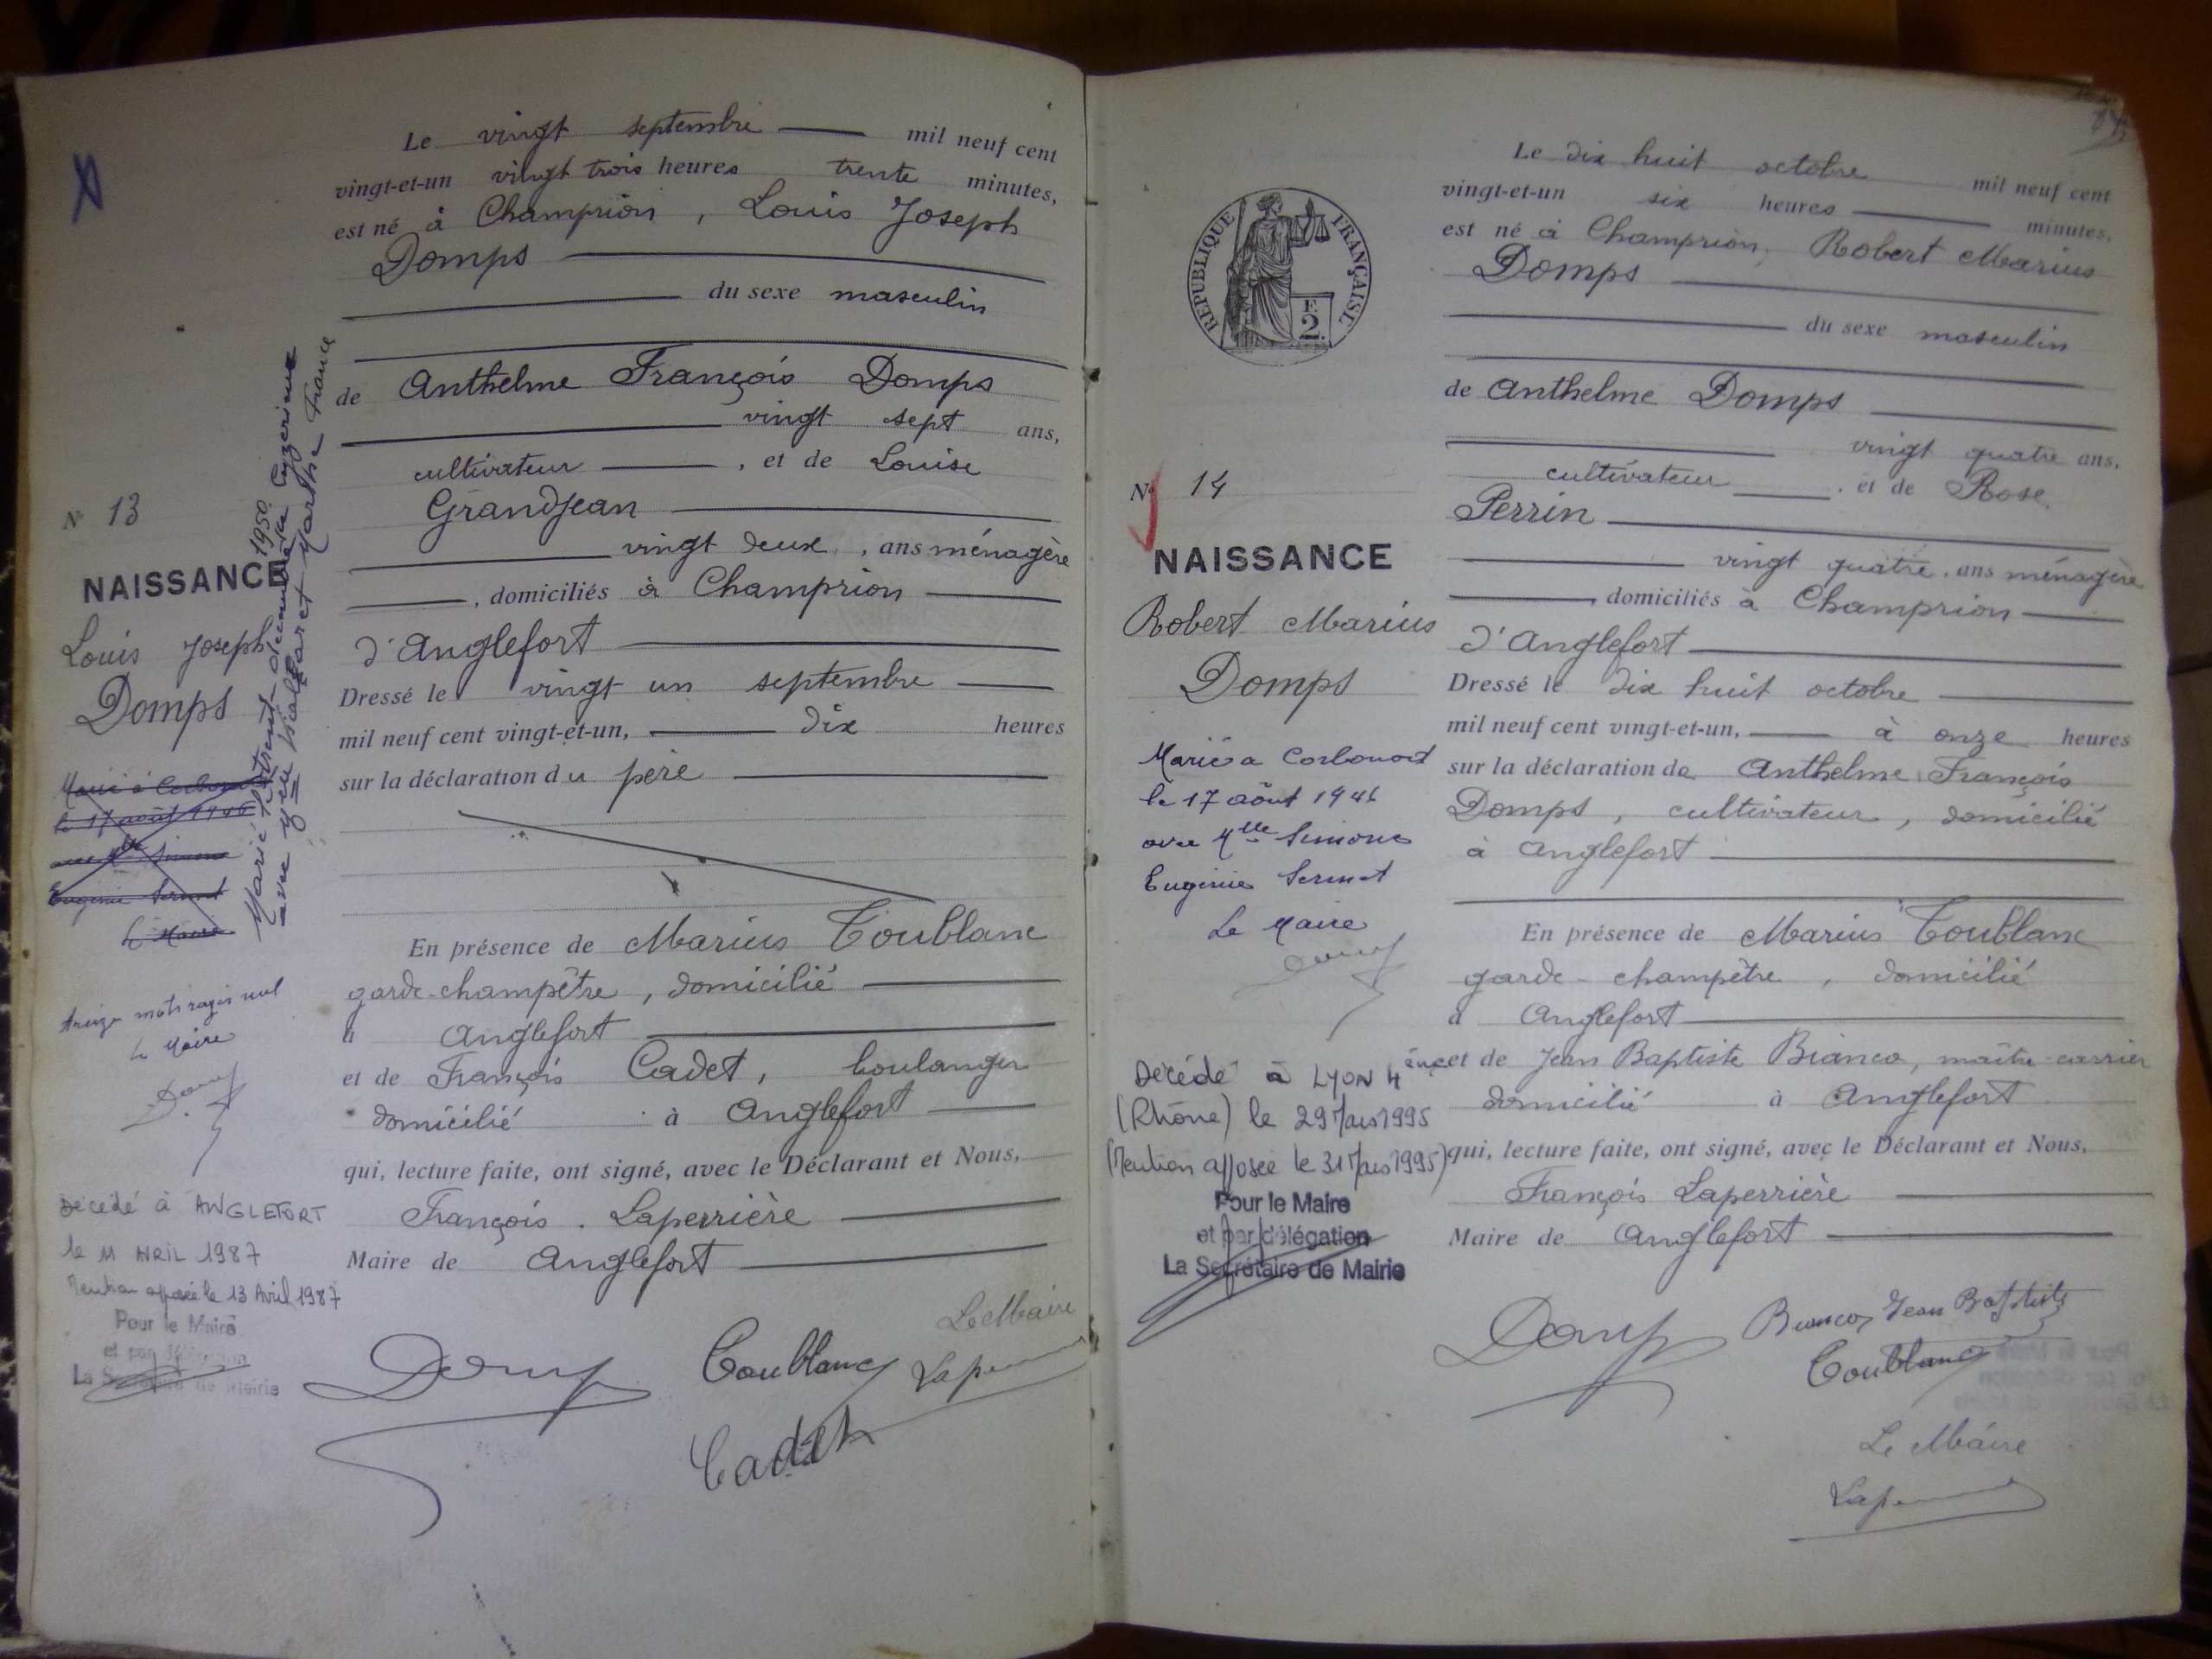 Le vingt septembre mil neuf cent
vingt-et-un vingt trois heures trente minutes,
est né à Champrion, Louis Joseph
Domps
du sexe masculin
de Anthelme François Domps
vingt sept ans,
cultivateur, et de Louise
Grandjean
vingt deux, ans ménagère
, domiciliés à Champrion
d'Anglefort
Dressé le vingt un septembre
mil neuf cent vingt-et-un, dix heures
sur la déclaration du père
En présence de Marius Toublanc
garde-champêtre, domicilié
à Anglefort
et de François Cadet, boulanger
domicilié à Anglefort
qui, lecture faite, ont signé, avec le Déclarant et Nous,
François Laperrière
Maire de Anglefort
Le Maire
Toublanc
Cadet
N° 13
NAISSANCE
Louis Joseph
Domps
Marié à Corbonod
le 17 août 1946
avec Mlle Simone
Eugénie Sermet
Le Maire
Marié le trent décembre 1950
avec Marthe France
treize mots rayés nul
Le Maire
Décédé à ANGLEFORT
le 11 AVRIL 1987
Mention apposée le 13 Avril 1987
Pour le Maire
et par délégation
La Secrétaire de Mairie
Le dix huit octobre mil neuf cent
vingt-et-un six heures minutes,
est né à Champrion, Robert Marius
Domps
du sexe masculin
de Anthelme Domps
vingt quatre ans,
cultivateur, et de Rose
Perrin
vingt quatre, ans ménagère
, domiciliés à Champrion
d'Anglefort
Dressé le dix huit octobre
mil neuf cent vingt-et-un, à onze heures
sur la déclaration de Anthelme François
Domps, cultivateur, domicilié
à Anglefort
En présence de Marius Toublanc
garde-champêtre, domicilié
à Anglefort
et de Jean Baptiste Bianco, maître-carrier
domicilié à Anglefort
qui, lecture faite, ont signé, avec le Déclarant et Nous,
François Laperrière
Maire de Anglefort
Bianco Jean Baptiste
Toublanc
Le Maire
RÉPUBLIQUE FRANÇAISE
F.
2.
N° 14
NAISSANCE
Robert Marius
Domps
Marié à Corbonod
le 17 août 1946
avec Mlle Simone
Eugénie Sermet
Le Maire
Décédé à LYON 4ème
(Rhône) le 29 Mars 1995
(Mention apposée le 31 Mars 1995)
Pour le Maire
et par délégation
La Secrétaire de Mairie